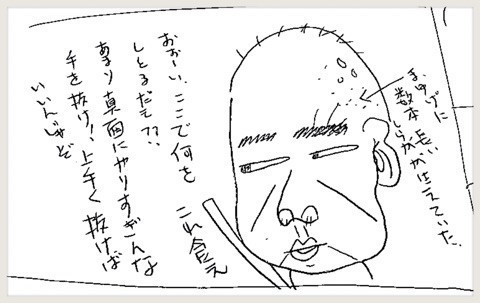 まゆげに
数本長い
しらがが生えていた。
おぉーい、ここで何を
しとるだて??
あまり真面にやりすぎんな
手を抜け!、上手く抜けば
いいんじゃぞ
これ